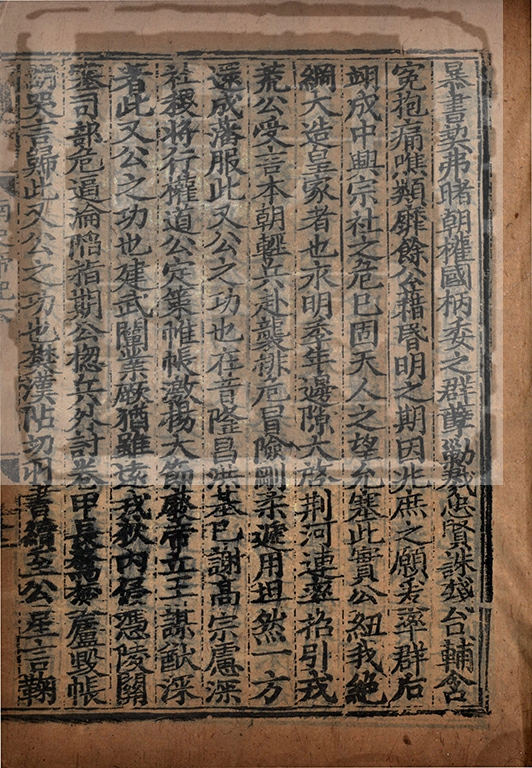 暴書契弗睹朝權國柄委之群孽勦戮忠賢誅殘台輔含
冤抱痛噍類靡餘公藉昏明之期因兆庶之願爰率群后
翊成中興宗社之危已固天人之望允塞此實公紐我絕
綱大造皇家者也永明季年邊隙大啓荆河連率招引戎
荒公受言本朝輕兵赴襲排危冒險剛柔遞用坦然一方
還成藩服此又公之功也在昔隆昌洪基已謝高宗慮深
社稷將行權道公定策帷帳激揚大節廢帝立王謀猷深
著此又公之功也建武闡業厥猶雖遠戎狄内侵憑陵關
塞司部危逼淪陷指期公揔兵外討卷甲長騖焚廬毀帳
號哭言歸此又公之功也樊漢阽切羽書續至公星言鞠